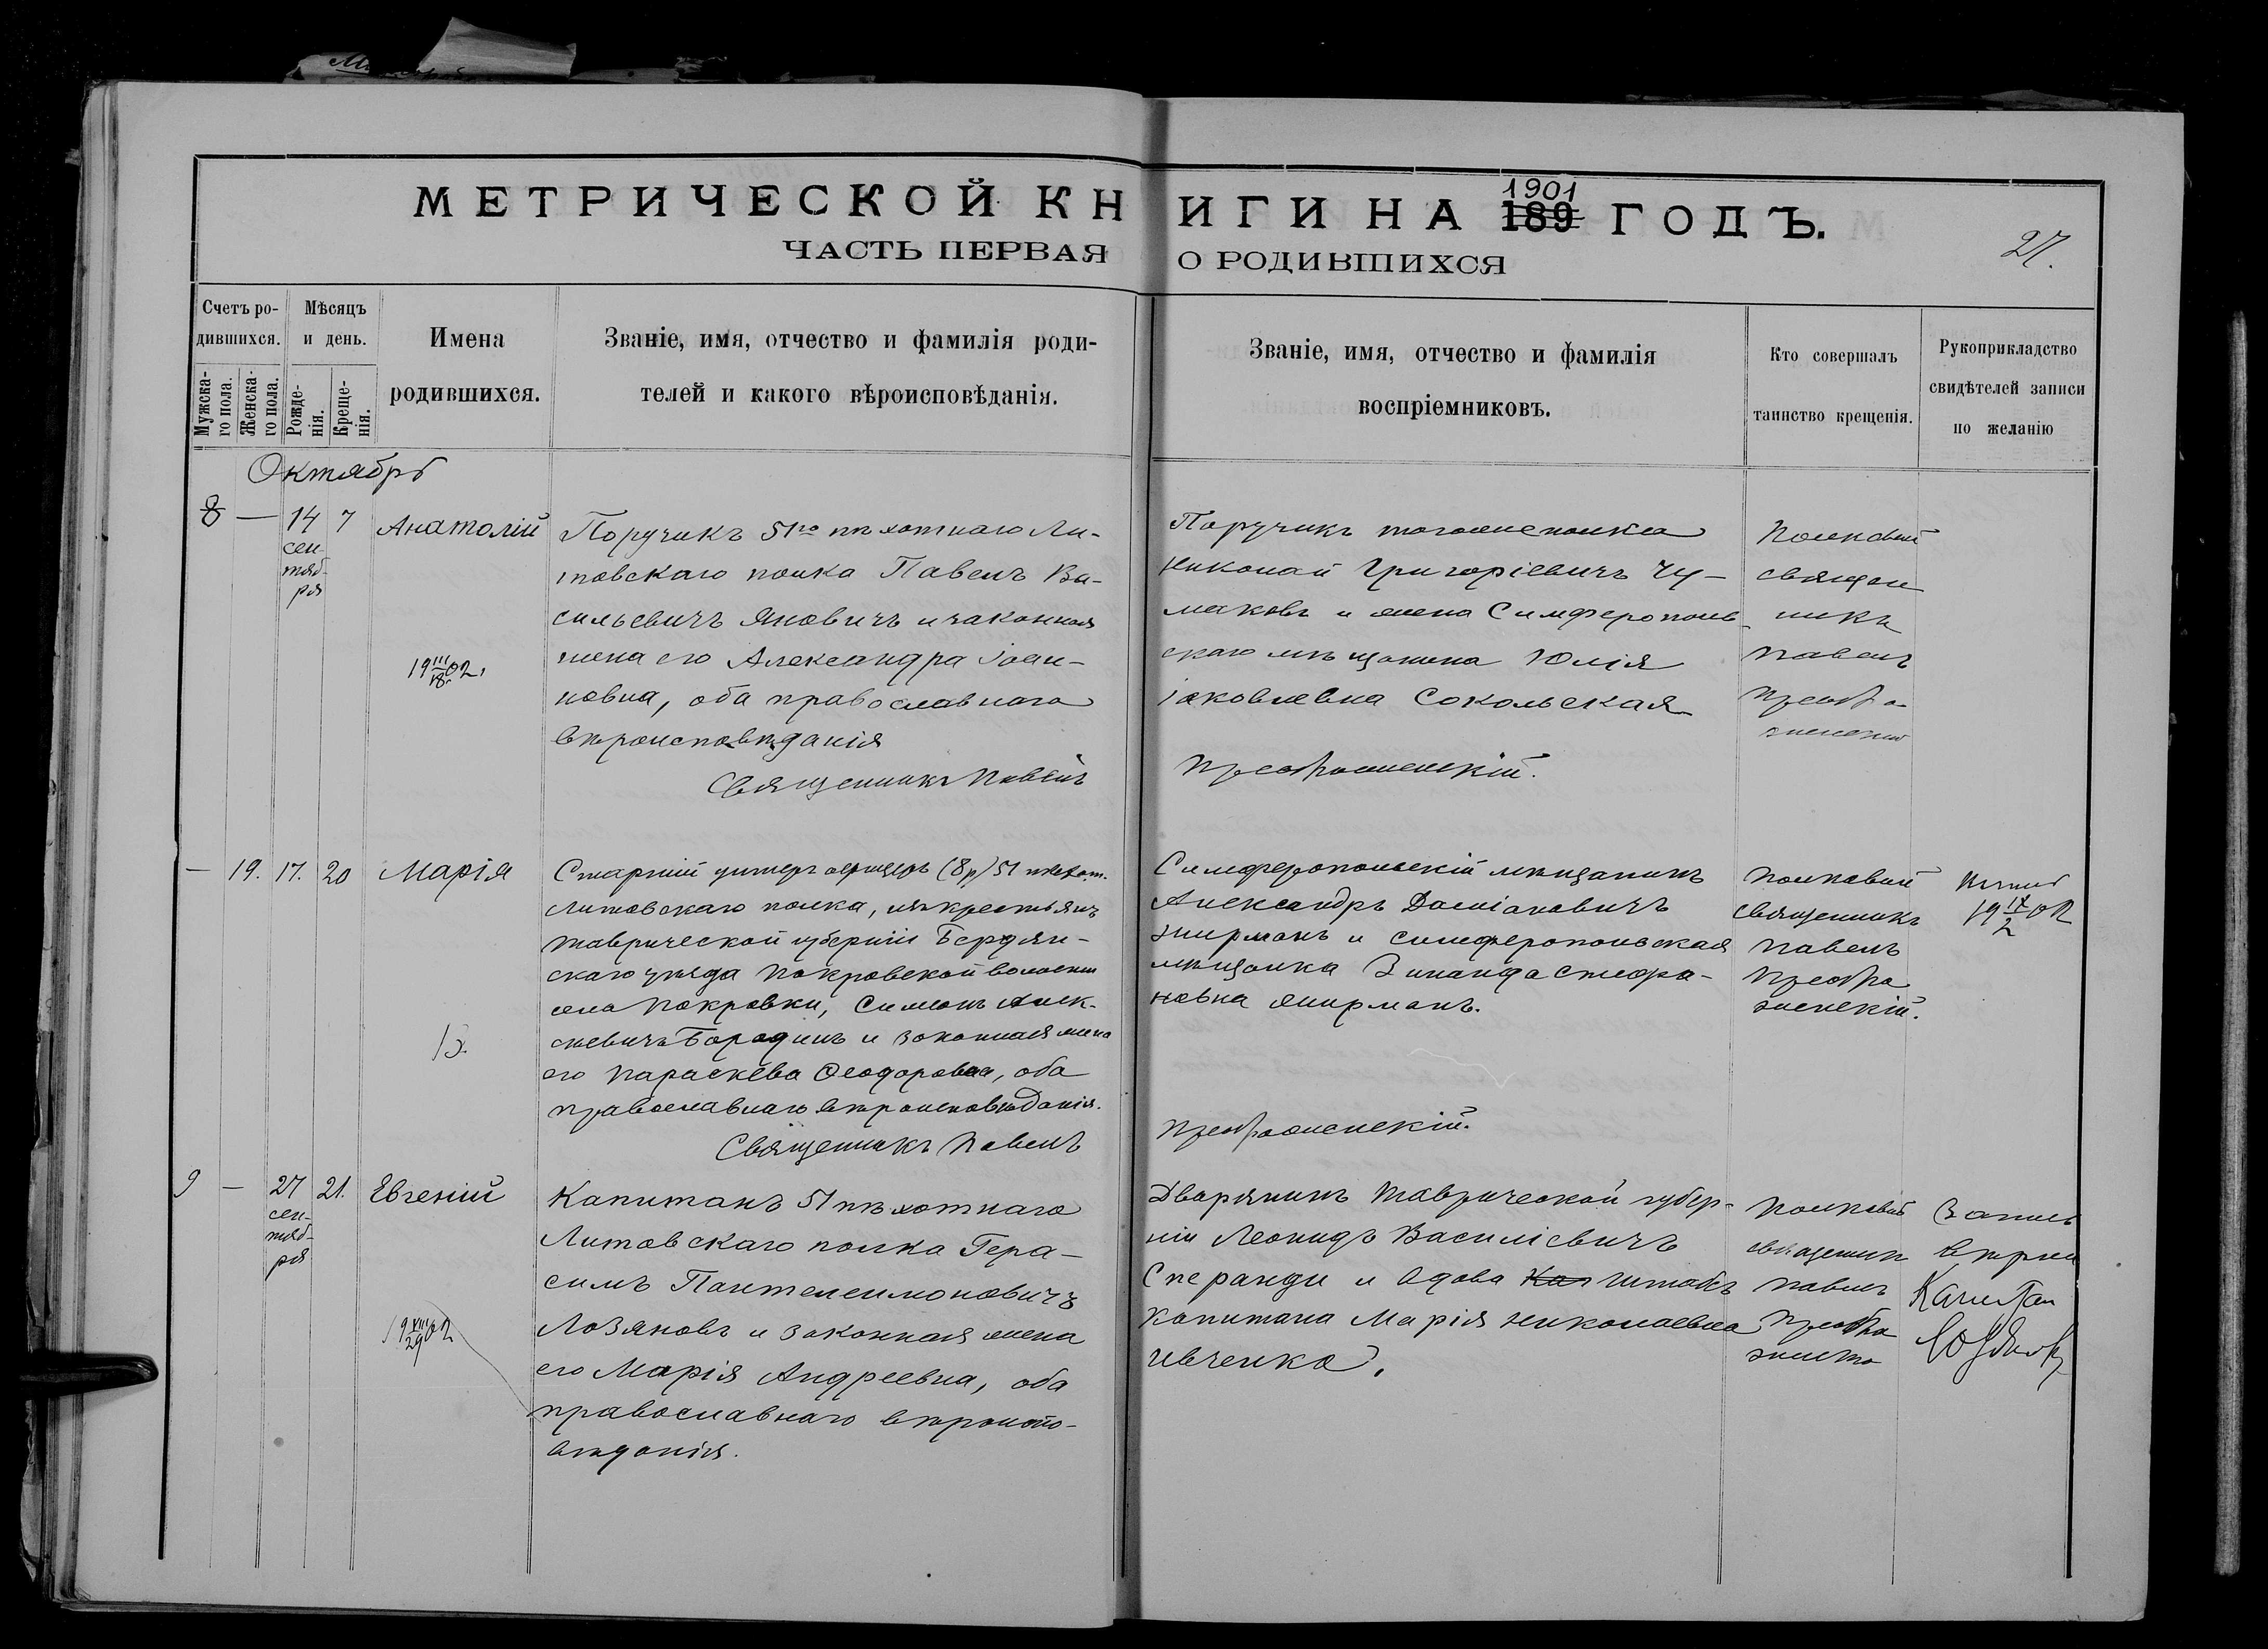 МЕТРИЧЕСКОЙ КНИГИ НА 1901 189 ГОДЪ.
ЧАСТЬ ПЕРВАЯ О РОДИВШИХСЯ
27.
Счетъ ро-
дившихся.
Мужска-
го пола.
Женска-
го пола.
Мѣсяцъ
и день.
Рожде-
нія.
Креще-
нія.
Имена
родившихся.
Званіе, имя, отчество и фамилія роди-
телей и какого вѣроисповѣданія.
Званіе, имя, отчество и фамилія
воспріемниковъ.
Кто совершалъ
таинство крещенія.
Рукоприкладство
свидѣтелей записи
по желанію
Октябрь
8 — 14 7 Анатолій
сен-
тяб-
ря
19 III/18 02.
Поручикъ 51го пѣхотнаго Ли-
товскаго полка Павелъ Ва-
сильевичъ Яновичъ и законная
жена его Александра Іоан-
новна, оба православнаго
вѣроисповѣданія
Священникъ Павелъ
Поручикъ тогоже полка
Николай Григоріевичъ Чу-
маковъ и жена Симферополь-
скаго мѣщанина Юлія
Іаковлевна Сокольская
Преображенскій.
Полковый
священ
никъ
Павелъ
Преобра-
женскій
— 19. 17. 20 Марія
Старшій унтеръ офицеръ (8р) 51 пѣхот.
Литовскаго полка, изъ крестьянъ
Таврической губерніи Бердян-
скаго уѣзда Покровской волости
села Покровки, Симеонъ Алек-
сѣевичъ Бородинъ и законная жена
его Параскева Ѳеодоровна, оба
православнаго вѣроисповѣданія.
Священникъ Павелъ
Симферопольскій мѣщанинъ
Александръ Даміановичъ
Жирманъ и симферопольская
мѣщанка Зинаида Стефа-
новна Жирманъ.
Преображенскій.
Полковый
священникъ
Павелъ
Преобра
женскій.
19 IX/2 02
9 — 27 21. Евгеній
сен-
тяб-
ря
19 VIII/29 02
Капитанъ 51 пѣхотнаго
Литовскаго полка Гера-
симъ Пантелеимоновичъ
Лозяновъ и законная жена
его Марія Андреевна, оба
православнаго вѣроиспо-
вѣданія.
Дворянинъ Таврической губер-
ніи Леонидъ Василіевичъ
Сперанди и вдова Кап штабсъ
капитана Марія Николаевна
Ивченко.
Полковый
священник
Павелъ
Преобра
женскій
Запись
вѣрна
Капитан
Лозянов